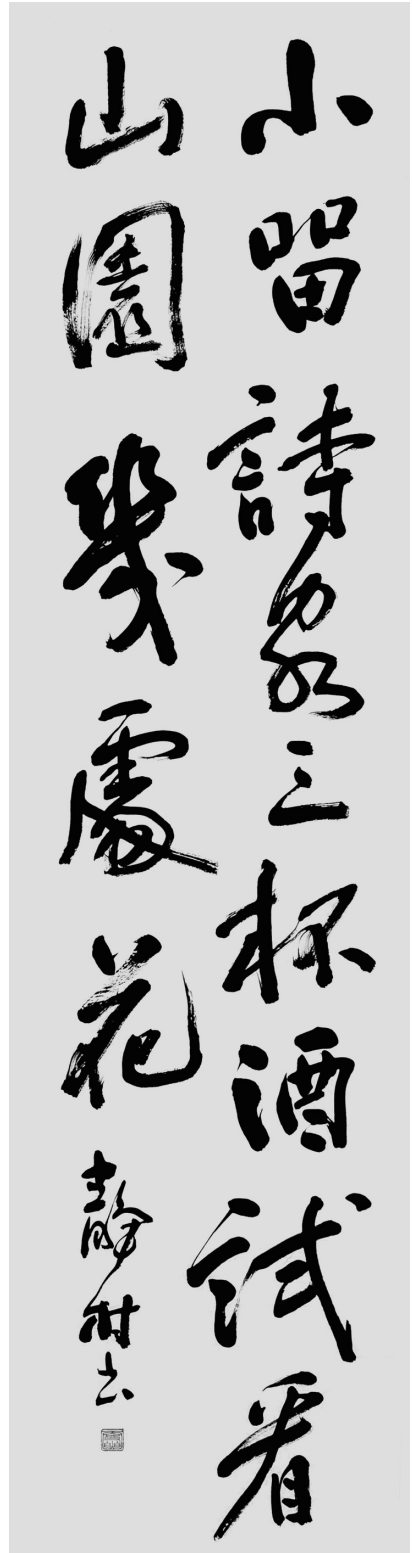 小留詩客三杯酒試看
山園幾處花
靜村書